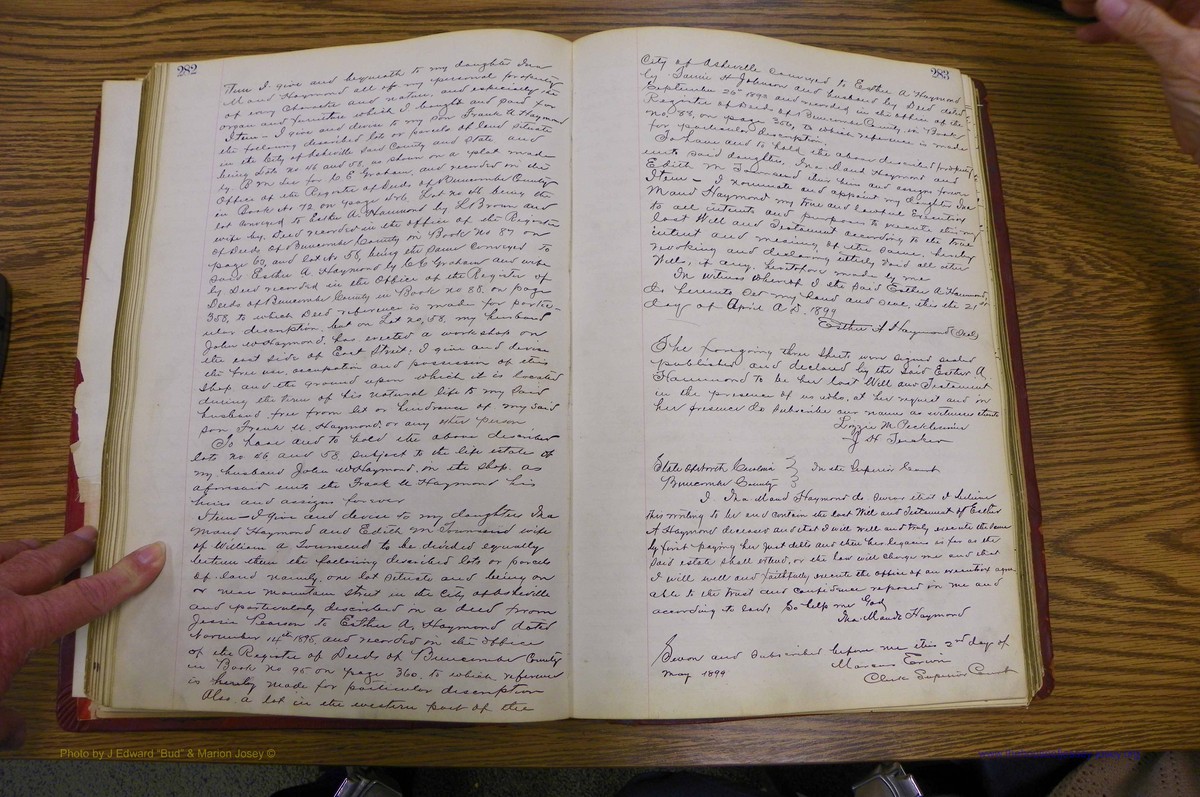 282
Then I give and bequeath to my daughter Ina
Maud Haymond all off my personal property
of every character and nature, and especially the
organ and furniture which I bought and paid for
Item - I give and devise to my son Frank A Haymond
the following described lots or parcels of land situate
in the City of Asheville said County and State and
being Lots no 56 and 58, as shown on a plat made
by B M Lee for C E Graham, and recorded in the
Office of the Register of Deeds of Buncombe County
in Book no 72 on page Lot no 56 being the
lot conveyed to Esther A. Haymond by Brown and
wife by Deed recorded in the office of the Register
of Deeds of Buncombe County in Book no 87 on
page 60, and lot no 58, being the same conveyed to
said Esther A. Haymond by C E Graham and wife
by Deed recorded in the Office of the Register of
Deeds of Buncombe County in Book no 88, on page
358, to which Deed reference is made for partic-
ular description, but on Lot no, 58, my husband
John W Haymond, has erected a work shop on
the east side of East Street; I give and devise
the free use, occupation and possession of this
shop and the ground upon which it is located
during the term of his natural life to my said
husband free from let or hindrance of my said
son Frank U. Haymond or any other person
To have and to hold the above described
lots no 56 and 58 subject to the life estate of
my husband John W Haymond, in the shop, as
aforesaid unto the Frank U Haymond his
heirs and assigns forever
Item - I give and devise to my daughters Ina
Maud Haymond and Edith M Townsend wife
of William A Townsend to be divided equally
between them the following described lots or parcels
of land namely, one lot situate and being on
or near Mountain Street in the City of Asheville
and particularly described in a deed from
Jessie Pearson to Esther A, Haymond dated
November 14th 1895 and recorded in the Office
of the Register of Deeds of Buncombe County
in Book no 95 on page 360, to which reference
is hereby made for particular description
Also a lot in the western part of the
283
City of Asheville conveyed to Esther A Haymond
by Fannie H Johnson and husband by Deed dated
September 20th 1893 and recorded in the office of the
Register of Deeds of Buncombe County in Book
no, 88, on page 356, to which reference is made
for particular description.
To have and to hold the above described property
unto said daughters, Ina Maud Haymond and
Edith M Townsend their heirs and assigns forever
Item - I nominate and appoint my daughter Ina
Maud Haymond my true and lawful Executrix
to all intents and purposes to execute this my
last Will and Testament according to the true
intent and meaning of the same, hereby
revoking and declaring utterly void all other
Wills, if any, heretofore made by me
In witness whereof I the said Esther A Haymond,
do hereunto set my hand and seal, this the 21st
day of April A D. 1899
Esther A Haymond (Seal)
The foregoing three sheets were signed sealed
published and declared by the said Esther A
Hammond to be her last Will and Testament
in the presence of us who, at her request and in
her presence do subscribe our names as witnesses thereto
Lizzie M.
J H Tucker
State of North Carolina } In the Superior Court
Buncombe County }
I, Ina Maud Haymond do swear that I believe
this writing to be and contain the last Will and Testament of Esther
A Haymond deceased and that I will well and truly execute the same
by first paying her just debts and then her legacies as far as the
said estate shall extend, or the law will charge me and that
I will well and faithfully execute the office of an executrix agree
able to the trust and confidence reposed in me and
according to law, So help me God
Ina Maude Haymond
Sworn and subscribed before me this 2nd day of
May 1899
Marcus Erwin
Clerk Superior Court
Photo by J Edward "Bud" & Marion Josey ©